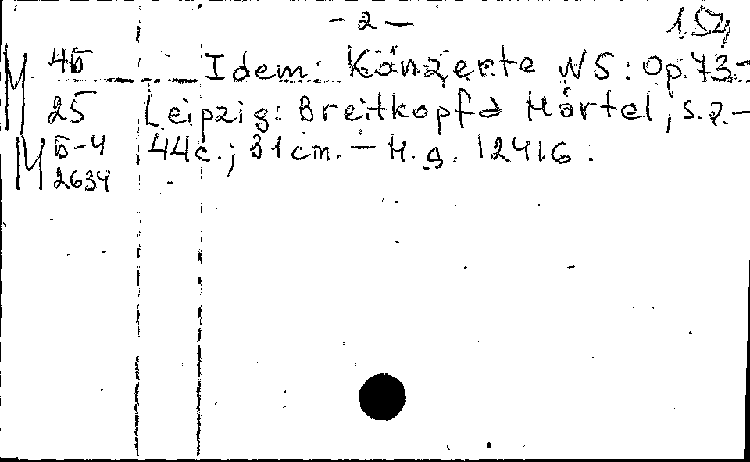 - 2 -
154
М 4Б Idem: Konzerte N5: Op. 73. -
25 Leipzig: Breitkopf & Härtel, s.a. -
М Б-4 44c.; 31cm. - Н.д. 12416.
2634